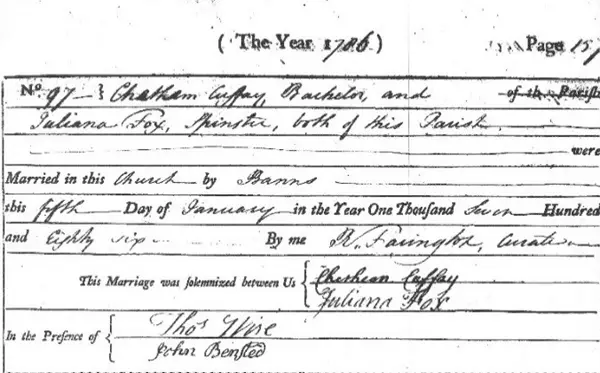 ( The Year 1786 ) Page 157
No. 97 } Chatham Cuffay, Bachelor, and of the Parish
Juliana Fox, Spinster, both of this Parish
were
Married in this Church by Banns
this fifth Day of January in the Year One Thousand Seven Hundred
and Eighty six By me R. Farington, Curate
This Marriage was solemnized between Us { Chatham Cuffay
Juliana Fox
In the Presence of { Thos Wire
John Bensted